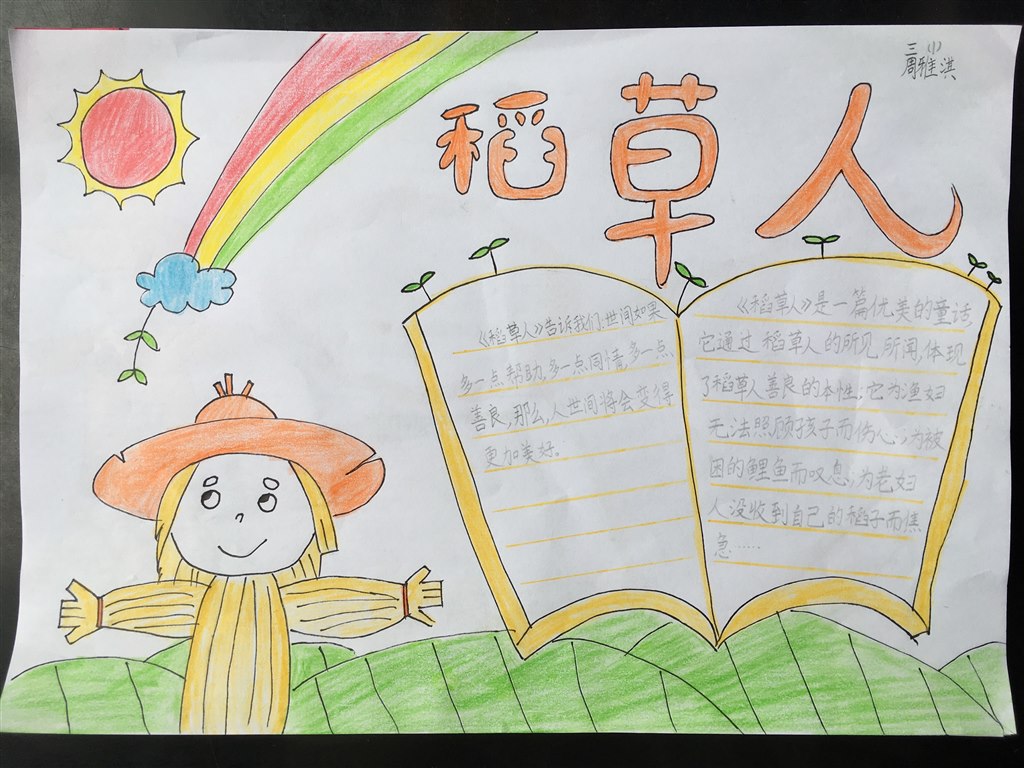 三（1）
周雅淇
稻草人
《稻草人》告诉我们,世间如果
多一点帮助,多一点同情,多一点
善良,那么,人世间将会变得
更加美好。
《稻草人》是一篇优美的童话,
它通过稻草人的所见所闻,体现
了稻草人善良的本性;它为渔妇
无法照顾孩子而伤心;为被
困的鲤鱼而叹息;为老妇
人没收到自己的稻子而焦
急……